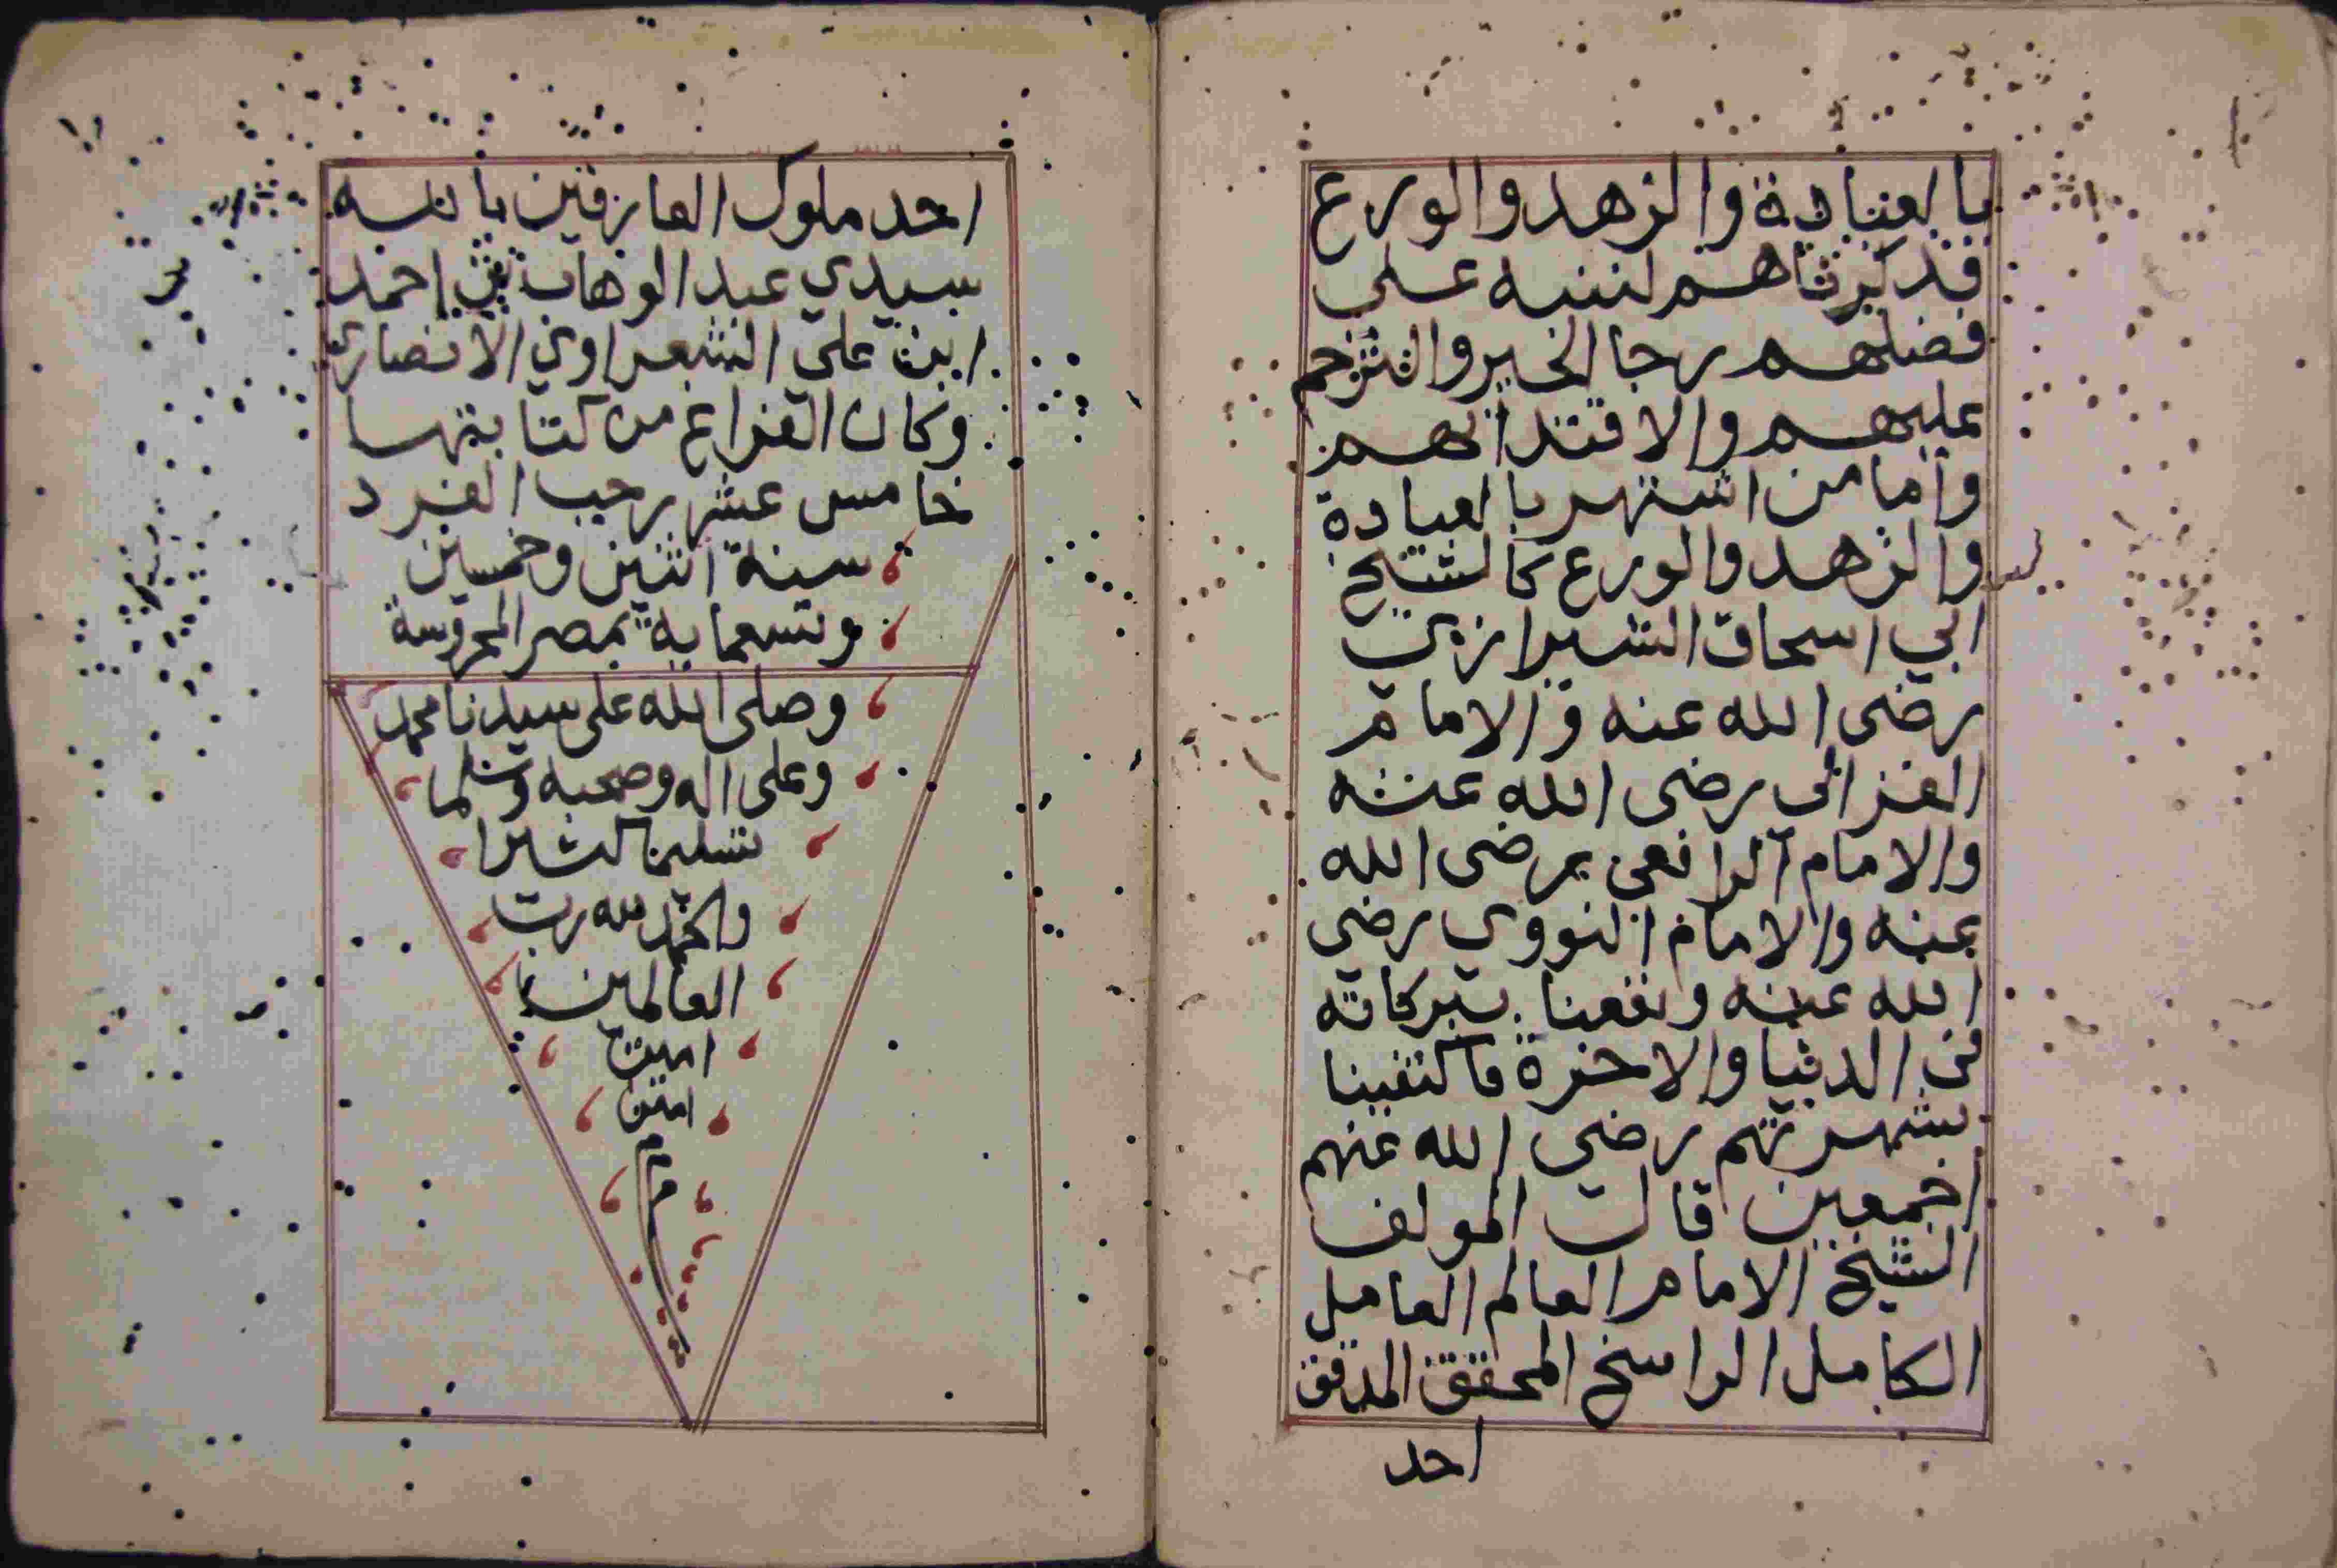 بالعبادة والزهد والورع
فذكرناهم لننبه على
فضلهم رجا الخير والترحم
عليهم والاقتدا بهم
واما من اشتهر بالعبادة
والزهد والورع كالشيخ
ابي اسحاق الشيرازي
رضى الله عنه والامام
الغزالى رضى الله عنه
والامام الرافعى رضى الله
عنه والامام النووي رضى
الله عنه ونفعنا ببركاته
فى الدنيا والاخرة فاكتفينا
بشهرتهم رضى الله عنهم
اجمعين قال المولف
الشيخ الامام العالم العامل
الكامل الراسخ المحقق المدقق
احد
احد ملوك العارفين بالله
سيدي عبد الوهاب بن احمد
ابن على الشعراوي الانصارى
وكان الفراغ من كتابتها
خامس عشر رجب الفرد
سنة اثنين وخمسين
وتسعماية بمصر المحروسة
وصلى الله على سيدنا محمد
وعلى اله وصحبه وسلما
تسليما كثيرا
والحمد لله رب
العالمين
امين
امين
م
م